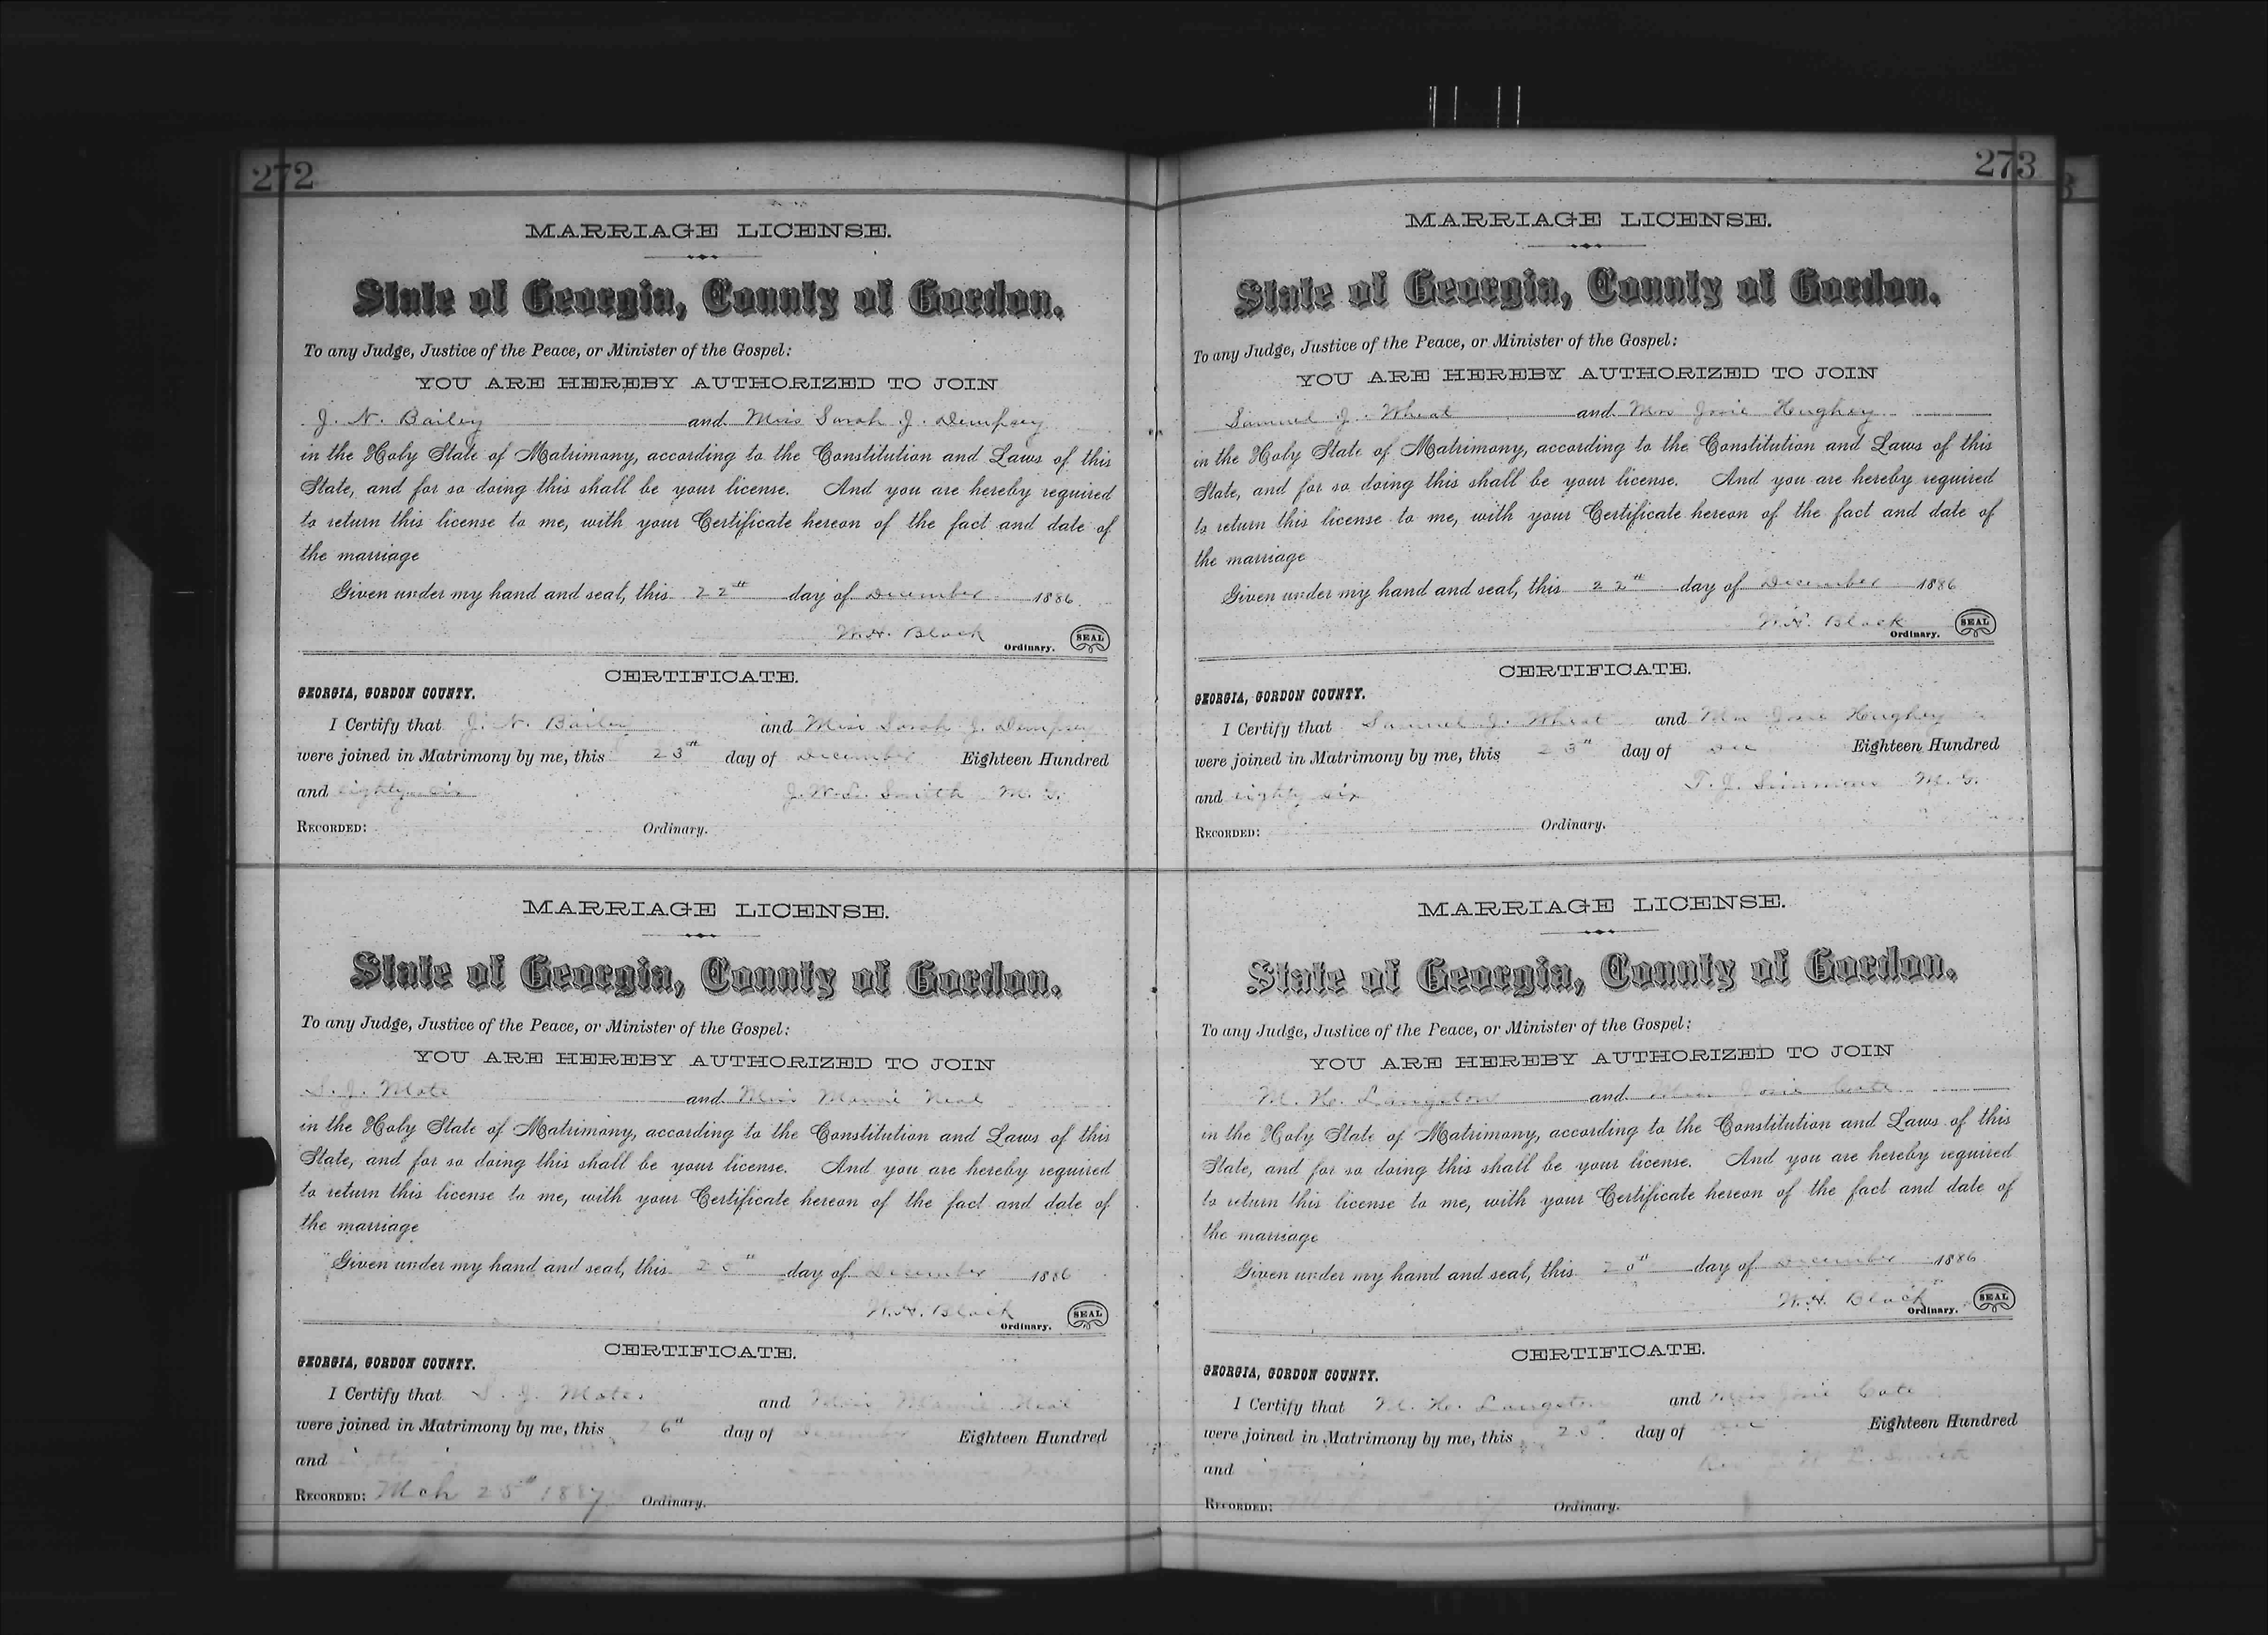 272
MARRIAGE LICENSE.
State of Georgia, County of Gordon.
To any Judge, Justice of the Peace, or Minister of the Gospel:
YOU ARE HEREBY AUTHORIZED TO JOIN
J. N. Bailey and Miss Sarah J. Dempsey
in the Holy State of Matrimony, according to the Constitution and Laws of this
State, and for so doing this shall be your license. And you are hereby required
to return this license to me, with your Certificate hereon of the fact and date of
the marriage
Given under my hand and seal, this 22nd day of December 1886
W.H. Black
Ordinary. SEAL
CERTIFICATE.
GEORGIA, GORDON COUNTY.
I Certify that J. N. Bailey and Miss Sarah J. Dempsey
were joined in Matrimony by me, this 23rd day of December Eighteen Hundred
and eighty six J. W. L. Smith M. G.
RECORDED: Ordinary.
MARRIAGE LICENSE.
State of Georgia, County of Gordon.
To any Judge, Justice of the Peace, or Minister of the Gospel:
YOU ARE HEREBY AUTHORIZED TO JOIN
S. J. Mote and Miss Mamie Neal
in the Holy State of Matrimony, according to the Constitution and Laws of this
State, and for so doing this shall be your license. And you are hereby required
to return this license to me, with your Certificate hereon of the fact and date of
the marriage
Given under my hand and seal, this day of December 1886
W.H. Black
Ordinary. SEAL
CERTIFICATE.
GEORGIA, GORDON COUNTY.
I Certify that S. J. Mote and Miss Mamie Neal
were joined in Matrimony by me, this 26th day of December Eighteen Hundred
and eighty
RECORDED: Mch 25th 1887 Ordinary.
273
MARRIAGE LICENSE.
State of Georgia, County of Gordon.
To any Judge, Justice of the Peace, or Minister of the Gospel:
YOU ARE HEREBY AUTHORIZED TO JOIN
Samuel J. Wheat and Mrs Josie Hughey
in the Holy State of Matrimony, according to the Constitution and Laws of this
State, and for so doing this shall be your license. And you are hereby required
to return this license to me, with your Certificate hereon of the fact and date of
the marriage
Given under my hand and seal, this 22nd day of December 1886
W.H. Black
Ordinary. SEAL
CERTIFICATE.
GEORGIA, GORDON COUNTY.
I Certify that Samuel J. Wheat and Mrs Josie Hughey
were joined in Matrimony by me, this 23rd day of Dec Eighteen Hundred
and eighty six T. J. Simmons M. G.
RECORDED: Ordinary.
MARRIAGE LICENSE.
State of Georgia, County of Gordon.
To any Judge, Justice of the Peace, or Minister of the Gospel:
YOU ARE HEREBY AUTHORIZED TO JOIN
M. H. Langston and Miss Josie Cate
in the Holy State of Matrimony, according to the Constitution and Laws of this
State, and for so doing this shall be your license. And you are hereby required
to return this license to me, with your Certificate hereon of the fact and date of
the marriage
Given under my hand and seal, this day of December 1886
W.H. Black
Ordinary. SEAL
CERTIFICATE.
GEORGIA, GORDON COUNTY.
I Certify that M. H. Langston and Miss Josie Cate
were joined in Matrimony by me, this day of Dec Eighteen Hundred
and eighty six W. L. Smith
RECORDED: Ordinary.